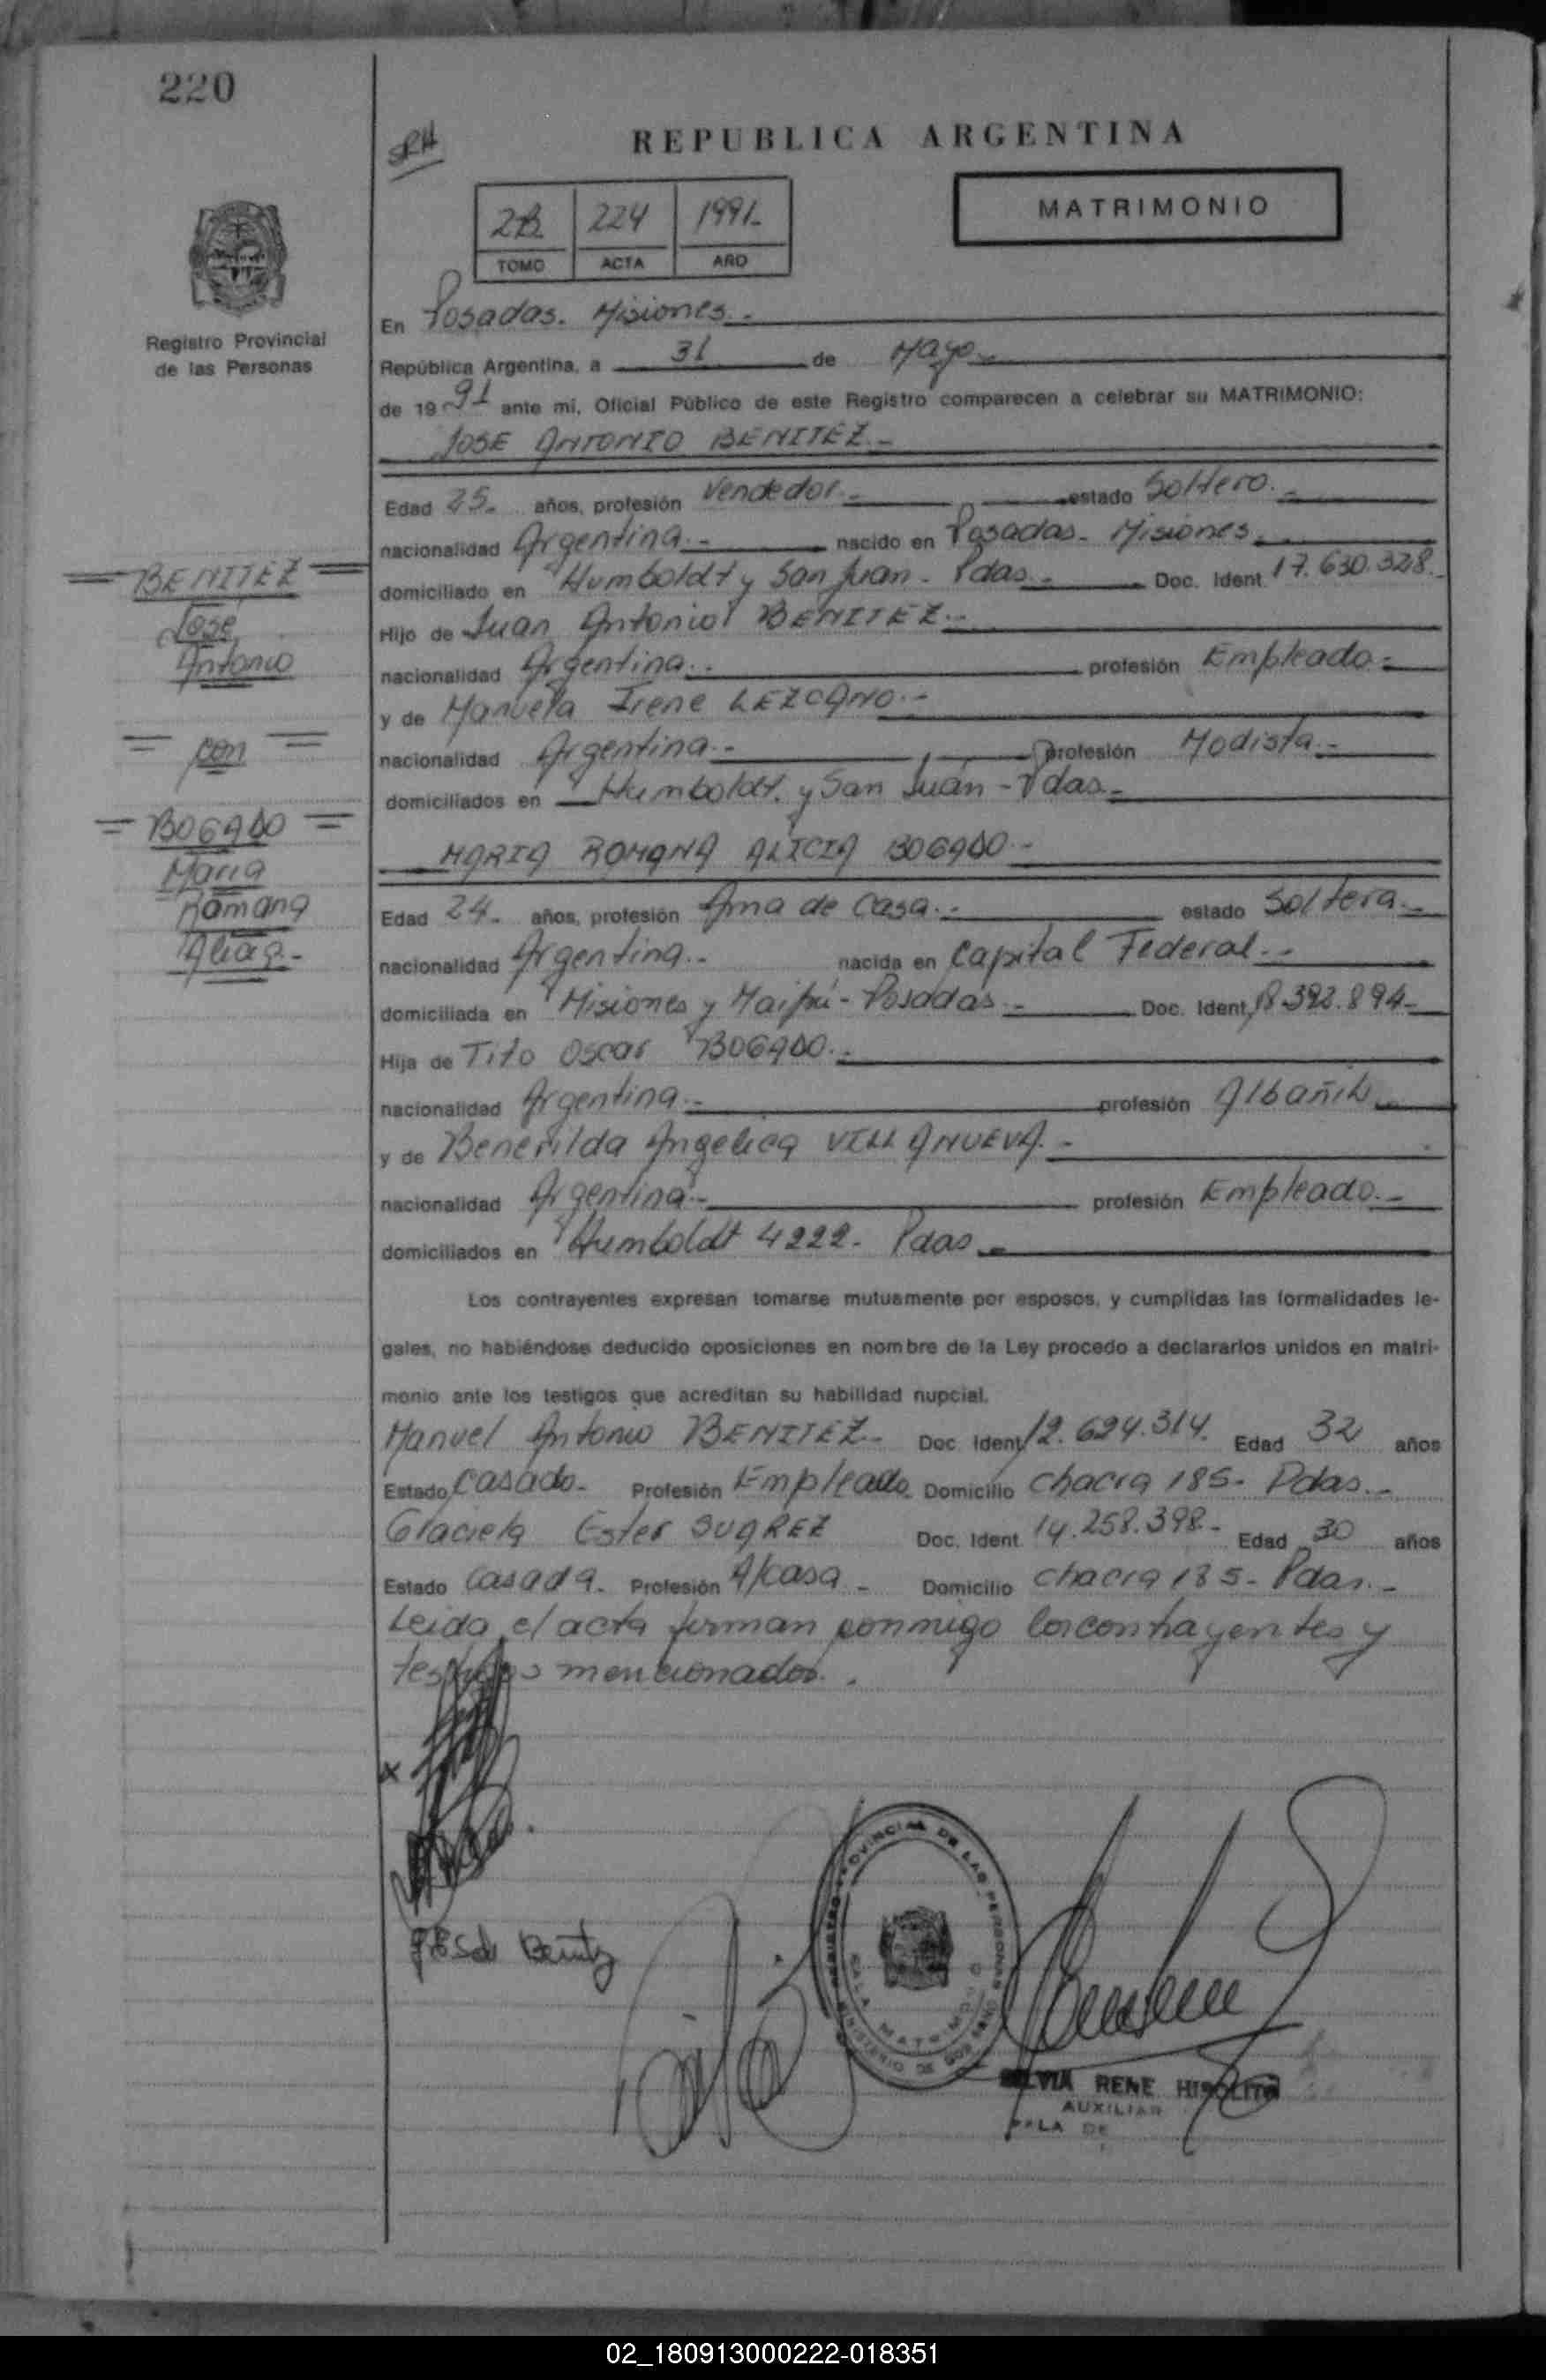 220
SRH
REPUBLICA ARGENTINA
2B 224 1991-
TOMO ACTA AÑO
MATRIMONIO
Registro Provincial
de las Personas
En Posadas. Misiones.-
República Argentina, a 31 de Mayo.-
de 19 91 ante mí, Oficial Público de este Registro comparecen a celebrar su MATRIMONIO:
JOSE ANTONIO BENITEZ.-
Edad 25.- años, profesión Vendedor.- estado Soltero.-
nacionalidad Argentina.- nacido en Posadas- Misiones.
domiciliado en Humboldt y San Juan- Pdas.- Doc. Ident. 17.630.328.-
Hijo de Juan Antonio BENITEZ.-
nacionalidad Argentina.- profesión Empleado.-
y de Manuela Irene LEZCANO.-
nacionalidad Argentina.- profesión Modista.-
domiciliados en Humboldt. y San Juan - Pdas.-
BENITEZ
Jose
Antonio
con
BOGADO
Maria
Romana
Alicia.-
MARIA ROMANA ALICIA BOGADO.-
Edad 24.- años, profesión Ama de Casa.- estado Soltera.-
nacionalidad Argentina.- nacida en Capital Federal.-
domiciliada en Misiones y Maipú- Posadas.- Doc. Ident. 18.392.894-
Hija de Tito Oscar BOGADO.-
nacionalidad Argentina.- profesión Albañil.-
y de Benerilda Angelica VILLANUEVA.-
nacionalidad Argentina.- profesión Empleado.-
domiciliados en Humboldt 4222- Pdas.-
Los contrayentes expresan tomarse mutuamente por esposos, y cumplidas las formalidades le-
gales, no habiéndose deducido oposiciones en nombre de la Ley procedo a declararlos unidos en matri-
monio ante los testigos que acreditan su habilidad nupcial.
Manuel Antonio BENITEZ.- Doc. Ident. 12.624.314. Edad 32 años
Estado Casado.- Profesión Empleado. Domicilio Chacra 185- Pdas.-
Graciela Ester SUAREZ Doc. Ident. 14.258.398.- Edad 30 años
Estado Casada. Profesión A/casa - Domicilio Chacra 185- Pdas.-
Leida el acta firman conmigo los contrayentes y
testigos mencionados.
x
Benitz
REGISTRO PROVINCIAL DE LAS PERSONAS
MINISTERIO DE GOBIERNO
SALA MATRIMONIO
SILVIA RENE HIPOLITO
AUXILIAR
SALA DE
02_180913000222-018351